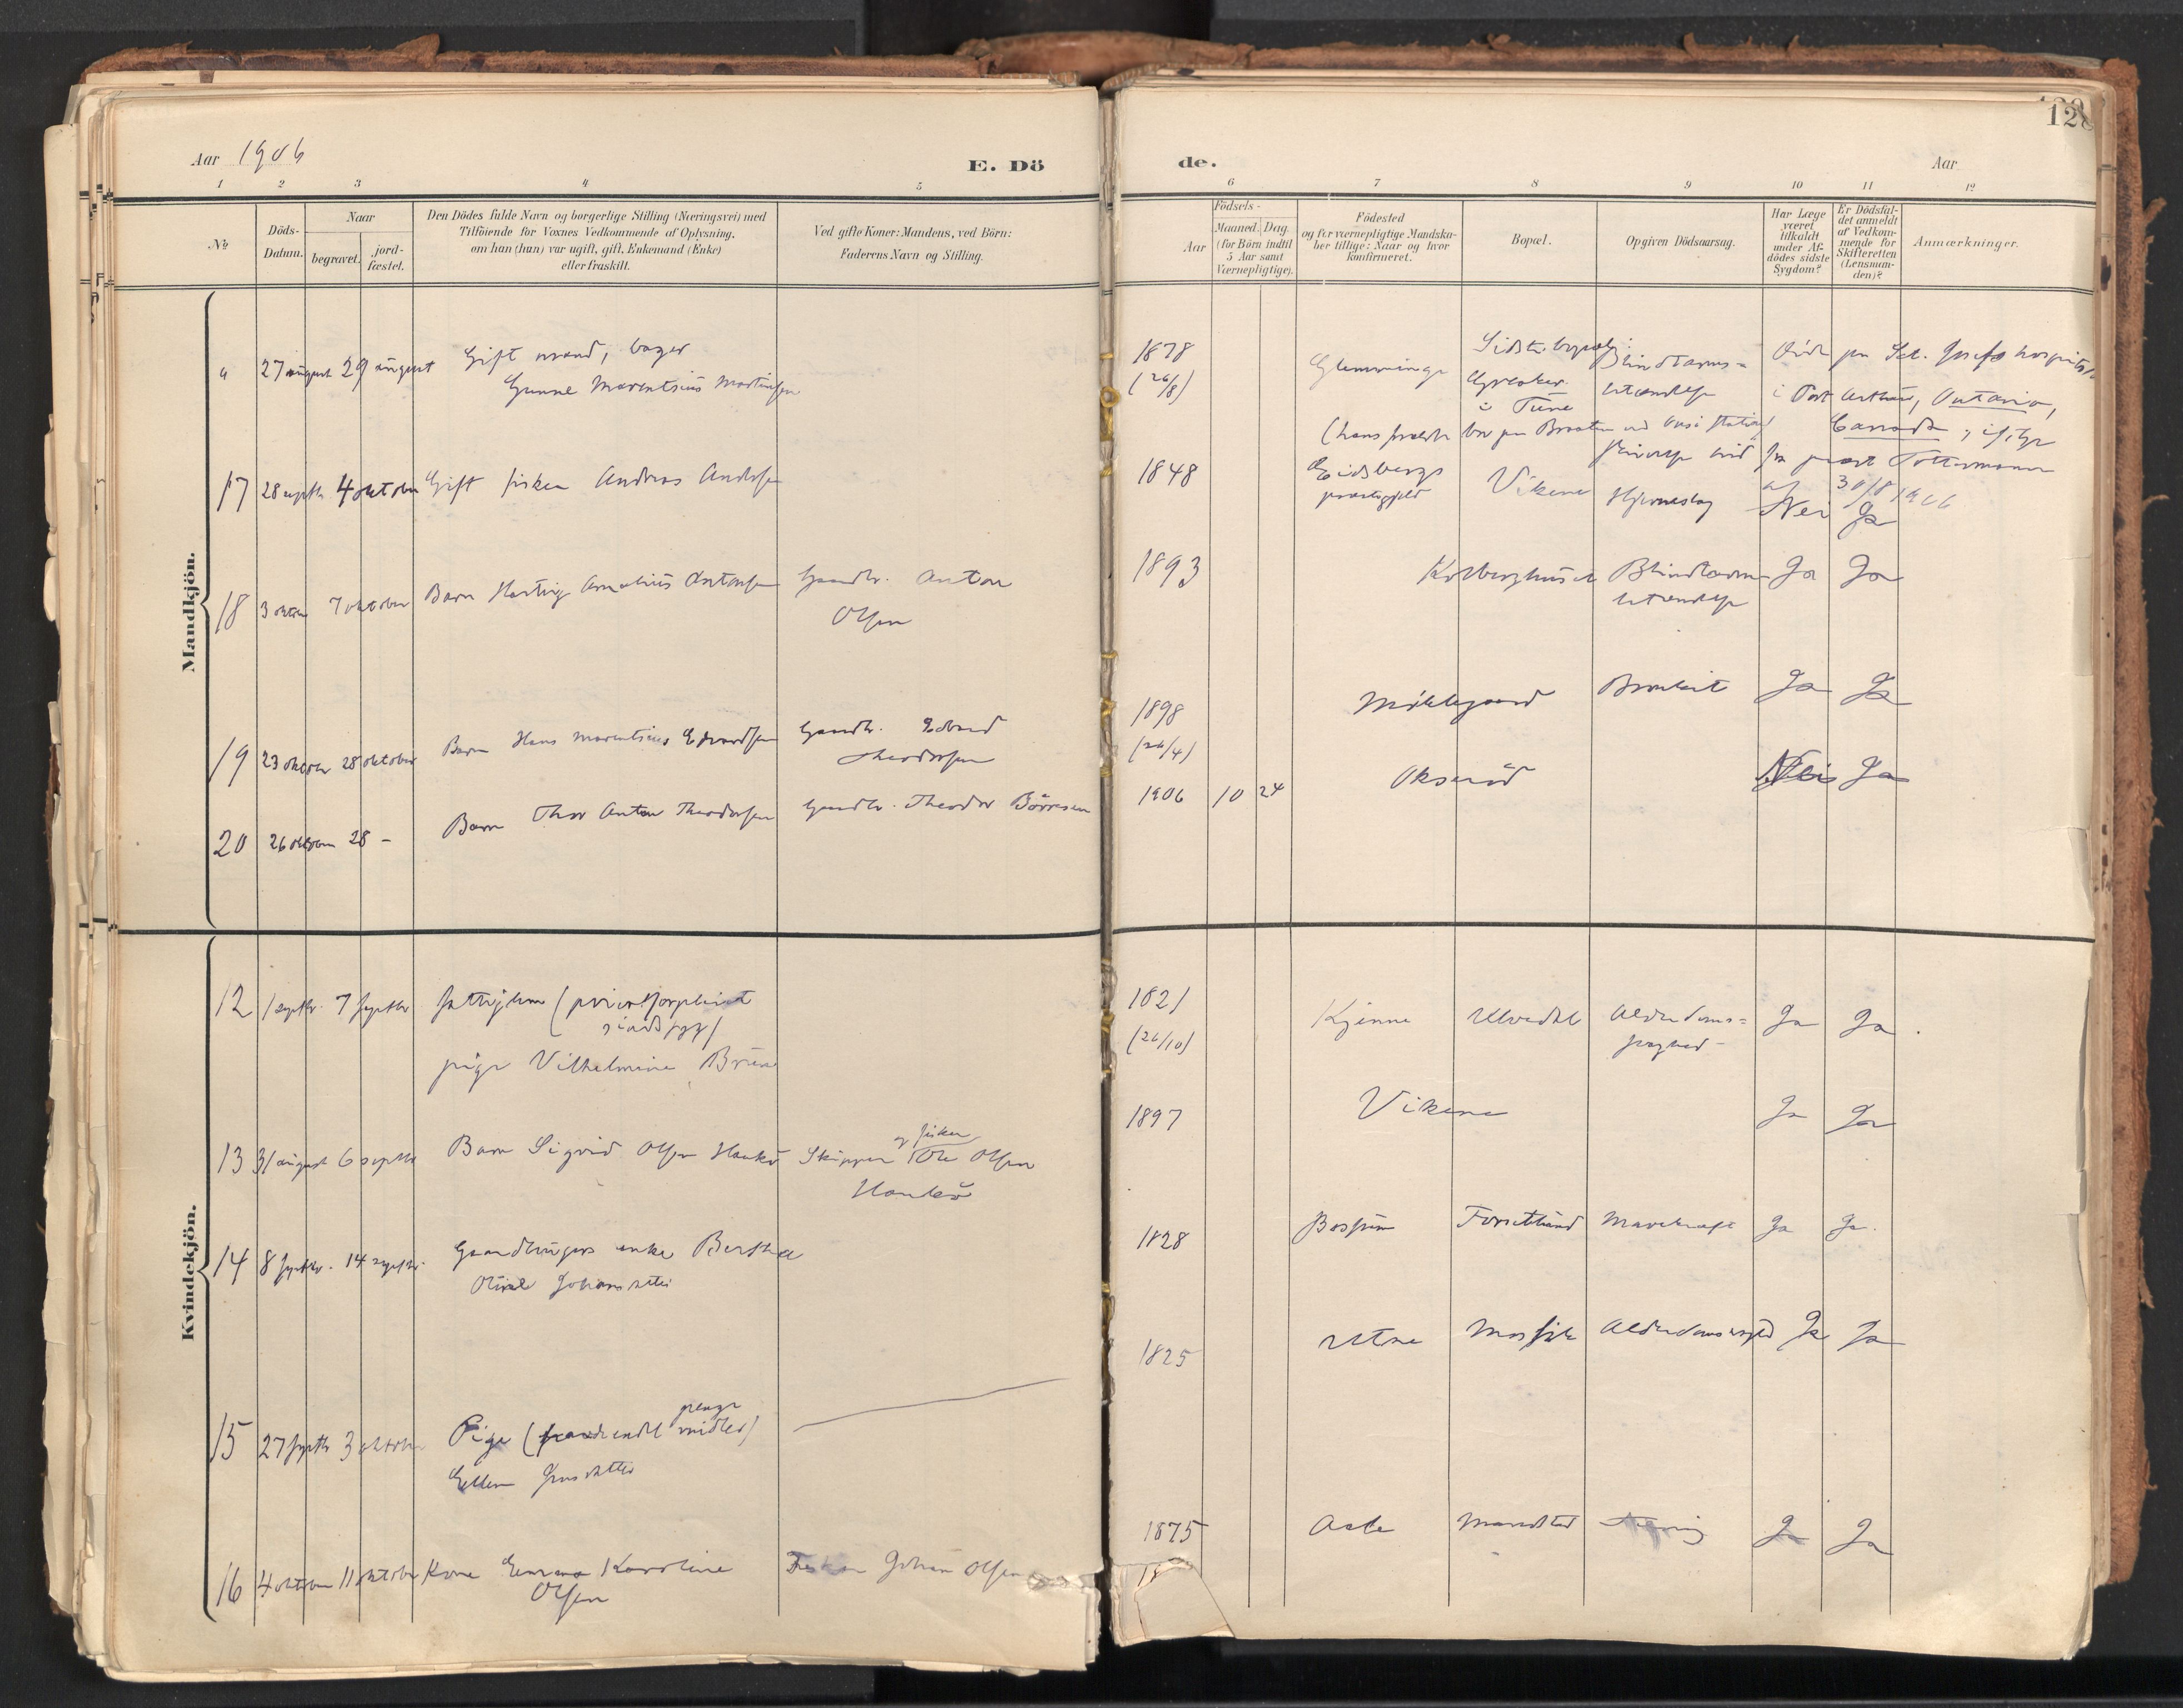 Aar 1906
E. Dö
de.
128
Aar
1 2 3 4 5 6 7 8 9 10 11 12
№
Döds-
Datum.
Naar
begravet.
jord-
fæstet.
Den Dödes fulde Navn og borgerlige Stilling (Næringsvei) med
Tilföiende for Voxnes Vedkommende af Oplysning,
om han (hun) var ugift, gift, Enkemand (Enke)
eller fraskilt.
Ved gifte Koner: Mandens, ved Börn:
Faderens Navn og Stilling.
Födsels-
Aar
Maaned. Dag.
(for Börn indtil
5 Aar samt
Værnepligtige).
Födested
og for værnepligtige Mandska-
ber tillige: Naar og hvor
konfirmeret.
Bopæl.
Opgiven Dödsaarsag.
Har Læge
været
tilkaldt
under Af-
dödes sidste
Sygdom?
Er Dödsfal-
det anmeldt
af Vedkom-
mende for
Skifteretten
(Lensman-
den)?
Anmærkninger.
Mandkjön.
" 27 august 29 august Gift mand, bager
Gunne Marentsius Martinsen
1878
(26/8)
Glemminge
Sidste bopæl:
Greaker
i Tune
Blindtarms=
betændelse
Död paa Sct. Josefs hospital
i Port Arthur, Ontario,
Canada
30/8 1906
17 28 septbr 4 oktober Gift fisker Andreas Andersen
1848 Eidsbergs
præstegjeld
Vikene Hjerneslag Nei Ja
18 3 oktober 7 oktober Barn Hartvig Arnelius Antonsen Gaardbr. Anton
Olsen
1893 Kolberghuset Blindtarms
betændelse Ja Ja
19 23 oktober 28 oktober Barn Hans Marentsius Edvardsen Gaardbr. Edvard
Theodorsen
1898
(26/4)
Bronkit Ja Ja
20 26 oktober 28 - Barn Thor Anton Theodorsen Gaardbr. Theodor Börresen
1906 10 24 Ökseröd Nei Ja
Kvindekjön.
12 1 septbr. 7 septbr fattiglem (privat forpleiet
sindssyg)
pige Vilhelmine Bruun
1821
(26/10)
Kjenne Ulvedal Alderdoms=
svaghed - Ja Ja.
13 31 august 6 septbr Barn Sigrid Olsen Hankö Skipper og fisker Ole Olsen
Hankö
1897 Vikene Ja Ja
14 8 septbr. 14 septbr. Gaardbrugers enke Berthe
Olive Johansdatter
1828 Forsetlund Marekraft Ja Ja.
15 27 septbr 3 oktober Pige ( penge midler)
Ellen Jensdatter
1825 Utne Alderdomssvaghed Ja Ja
16 4 oktober 11 oktober Kone Emma Karoline
Olsen
Fisker Johan Olsen
1875 Asle Ja Ja